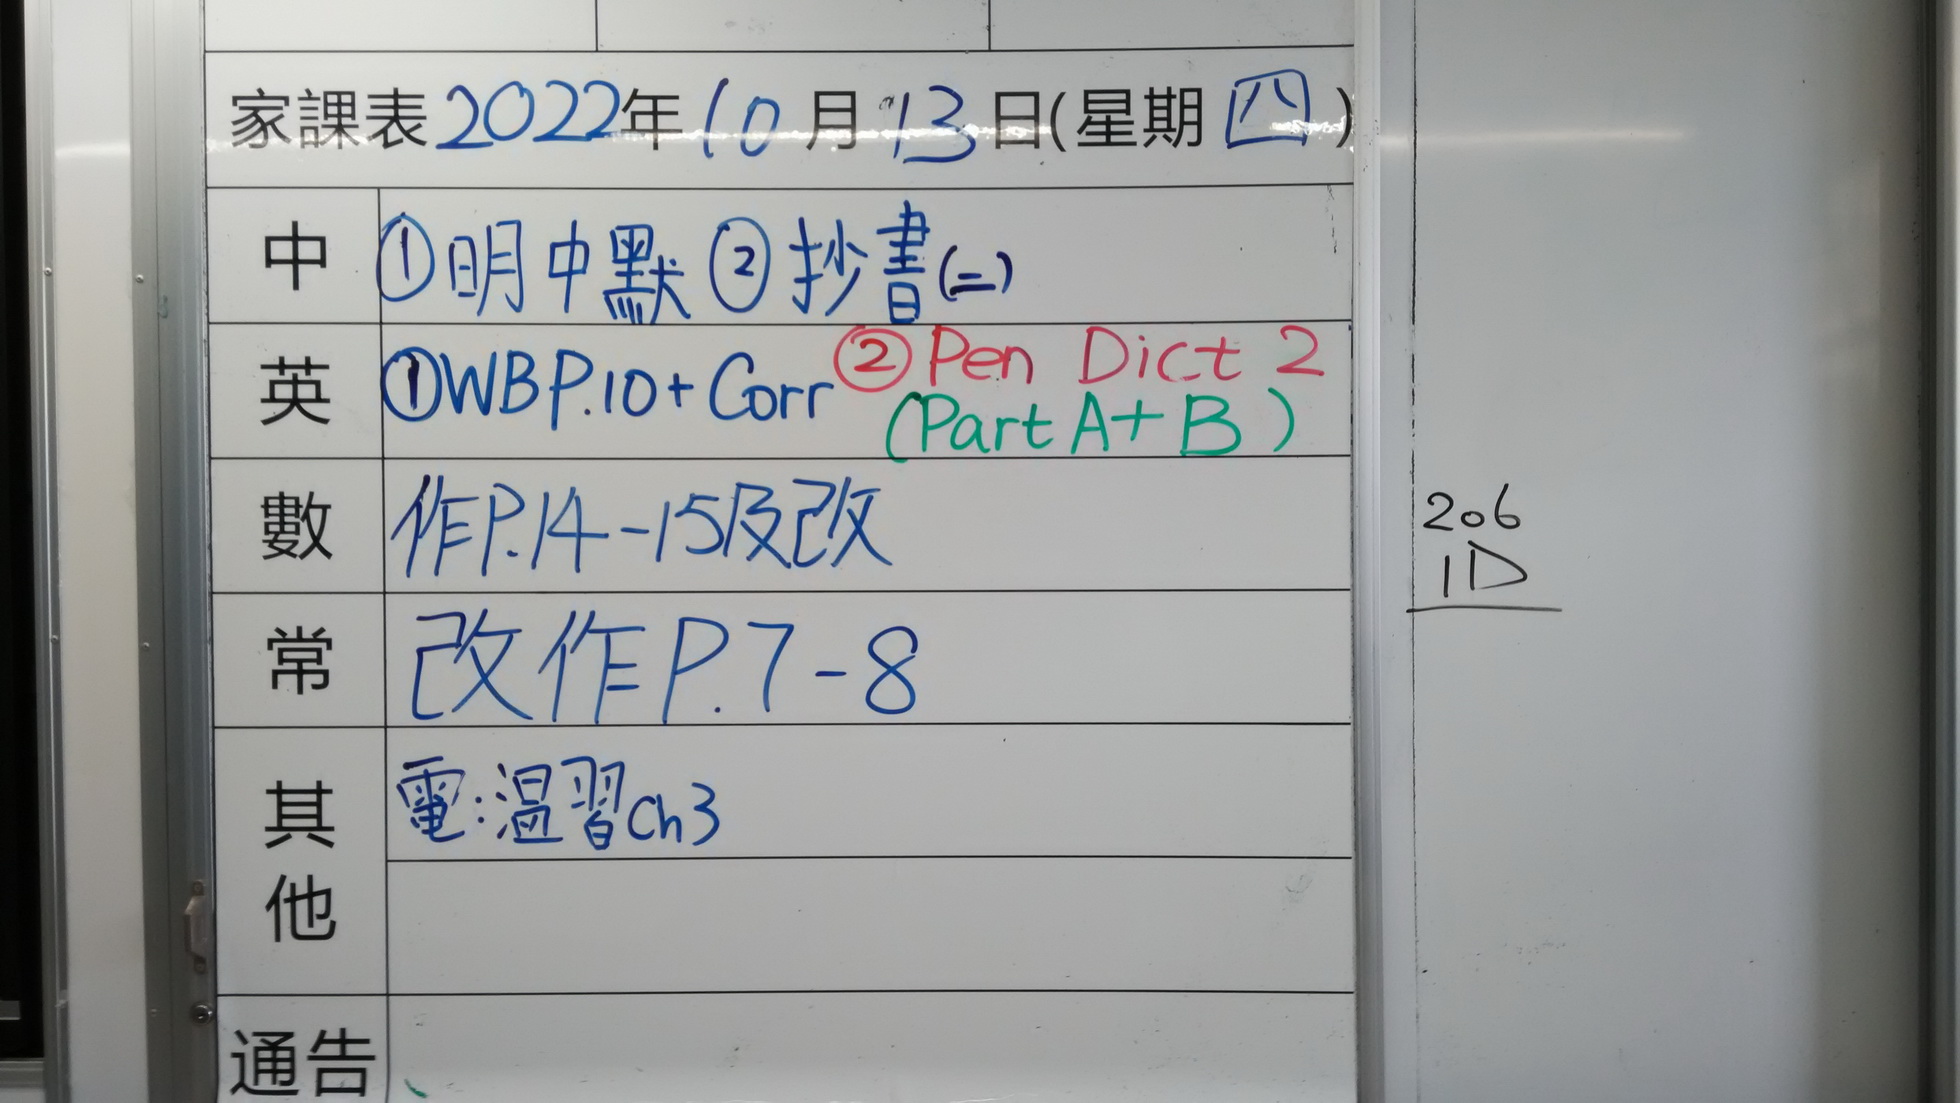 家課表2022年10月13日(星期四)
中 ①明中默 ②抄書(二)
英 ①WB P.10 + Corr ②Pen Dict 2
(Part A+B)
數 作P.14-15及改
常 改作P.7-8
其他 電:温習Ch3
通告
206
1D